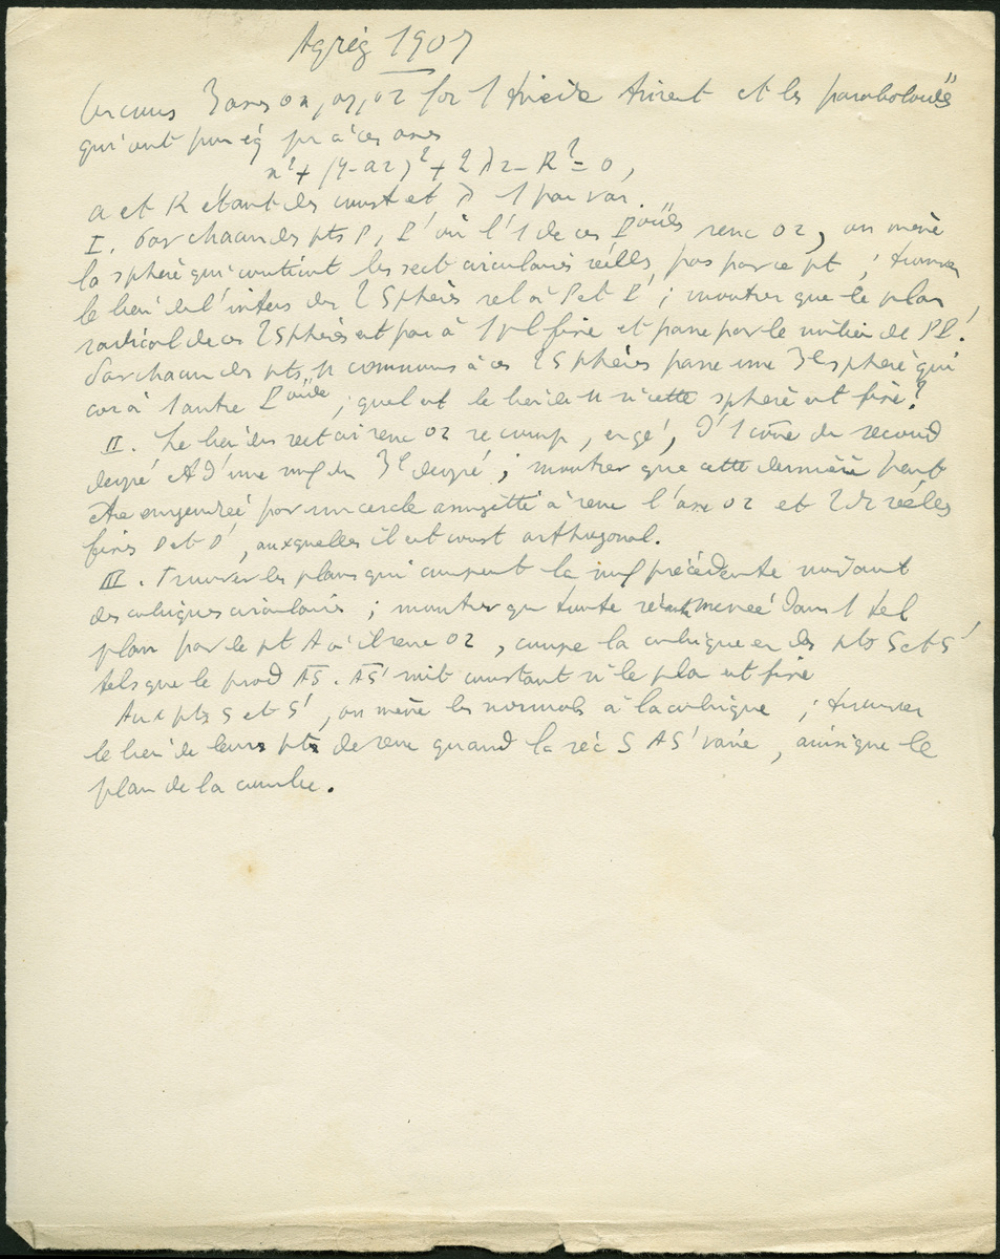 Agrég 1907
3 axes ox, oy, oz for 1 trièdre trirect et les paraboloïdes
qui ont pour ég pr à ces axes
x² + (y - az)² + 2λz - R² = 0,
a et R étant des const et λ 1 par var.
I. Par chacun des pts P, P' où l'1 de ces Poïdes renc oz, on mène
la sphère qui contient les sect circulaires réelles, pas par ce pt ; trouver
le lieu de l'inters des 2 sphères rel à P et P' ; montrer que le plan
radical de ces 2 sphères est par à 1 pl fixe et passe par le milieu de PP'.
Par chacun des pts M communs à ces 2 sphères passe une 3e sphère qui
cor à 1 autre Poïde ; quel est le lieu de M si cette sphère est fixe ?
II. Le lieu des sect cir renc oz se comp, en gé, d'1 cône du second
degré et d'une surf du 3e degré ; montrer que cette dernière peut
être engendrée par un cercle assujetti à renc l'axe oz et 2 dr réelles
fixes D et D', auxquelles il est const orthogonal.
III. Trouver les plans qui coupent la surf précédente suivant
des cubiques circulaires ; montrer que toute sécante menée dans 1 tel
plan par le pt A où il renc oz, coupe la cubique en des pts S et S'
tels que le prod AS. AS' soit constant si le plan est fixe
Aux pts S et S', on mène les normales à la cubique ; trouver
le lieu de leurs pts de renc quand la séc S AS' varie, ainsi que le
plan de la courbe.